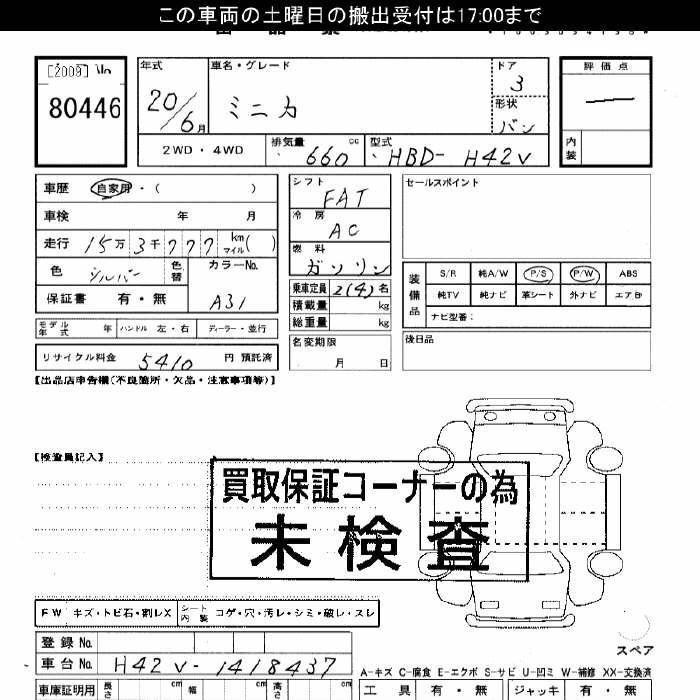 この車両の土曜日の搬出受付は17:00まで
[2009] No
80446
年式
20/6月
車名・グレード
ミニカ
ドア
3
形状
バン
評価点
内装
2WD・4WD
排気量 660 cc
型式 HBD- H42V
車歴 自家用・( )
車検 年 月
走行 15万3千777 km マイル( )
色 シルバー 色替
カラーNo. A31
保証書 有・無
シフト
FAT
冷房
AC
燃料
ガソリン
乗車定員 2(4)名
積載量 kg
総重量 kg
セールスポイント
装備品
S/R 純A/W P/S P/W ABS
純TV 純ナビ 革シート 外ナビ エアB
ナビ型番:
モデル年式 年 ハンドル 左・右 ディーラー・並行
名変期限
月 日
後日品
リサイクル料金 5410 円 預託済
【出品店申告欄(不良箇所・欠品・注意事項等)】
【検査員記入】
買取保証コーナーの為
未検査
FW キズ・トビ石・割レX シート内装 コゲ・穴・汚レ・シミ・破レ・スレ
登録No.
車台No. H42V-1418437
スペア
A-キズ C-腐食 E-エクボ S-サビ U-凹ミ W-補修 XX-交換済
車庫証明用 長さ cm 幅 cm 高さ cm
工具 有・無 ジャッキ 有・無